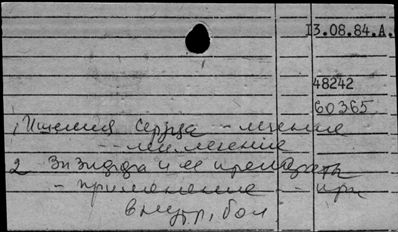 13.08.84.А.
48242
60365
1, Ишемия сердца - лечение
- мимение
2 и ее препараты
- применение - при
внутр. бол